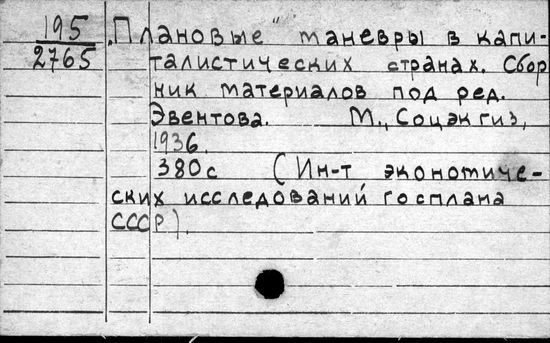 195
2765
"Плановые" маневры в капи-
талистических странах. Сбор
ник материалов под ред.
Эвентова. М., Соцэкгиз,
1936.
380с (Ин-т экономиче-
ских исследований госплана
СССР).